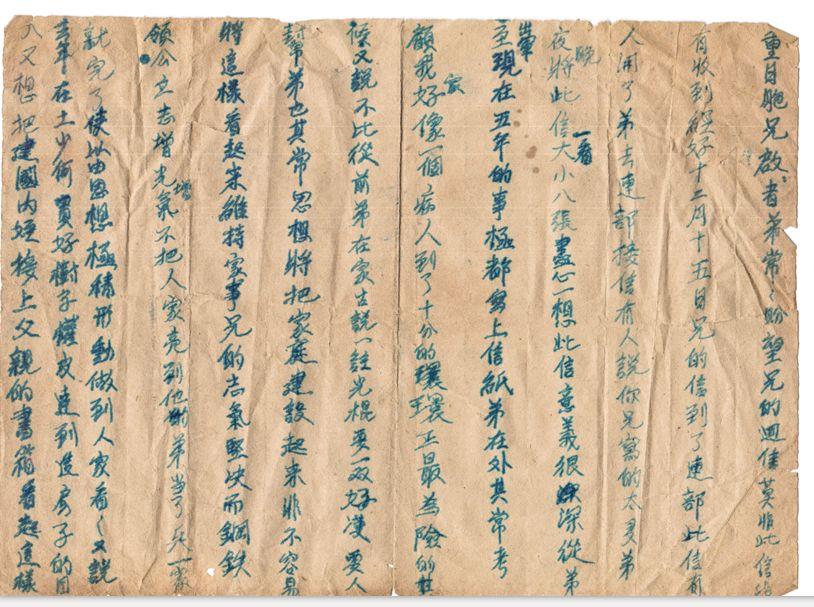 胞兄啟者弟常々盼望兄的迴信莫非此信
有收到經好十二月十五日兄的信到了連部此信有
人 了弟去連部接信有人說你兄寫的太多弟
夜晚將此信大小八張一看盡心一想此信意義很深從弟
現在五年的事極都寫上信紙弟在外其常考
顧我家好像一個病人到了十分的環 正最為險的
候又說不比從前弟在家古說一 光棍要一双好漢要人
幫弟也其常思想將把家庭建設起來非不容易
將這樣看起來維持家事兄的志氣堅决而鋼鉄
領公立志增光氣不把人家亮到他的弟当了兵一家
就完了使以由思想極積形動做到人家看々又說
去年在土少何買好樹子 皮達到造房子的目
人又想把建國內姪接上父親的書箱看起這樣